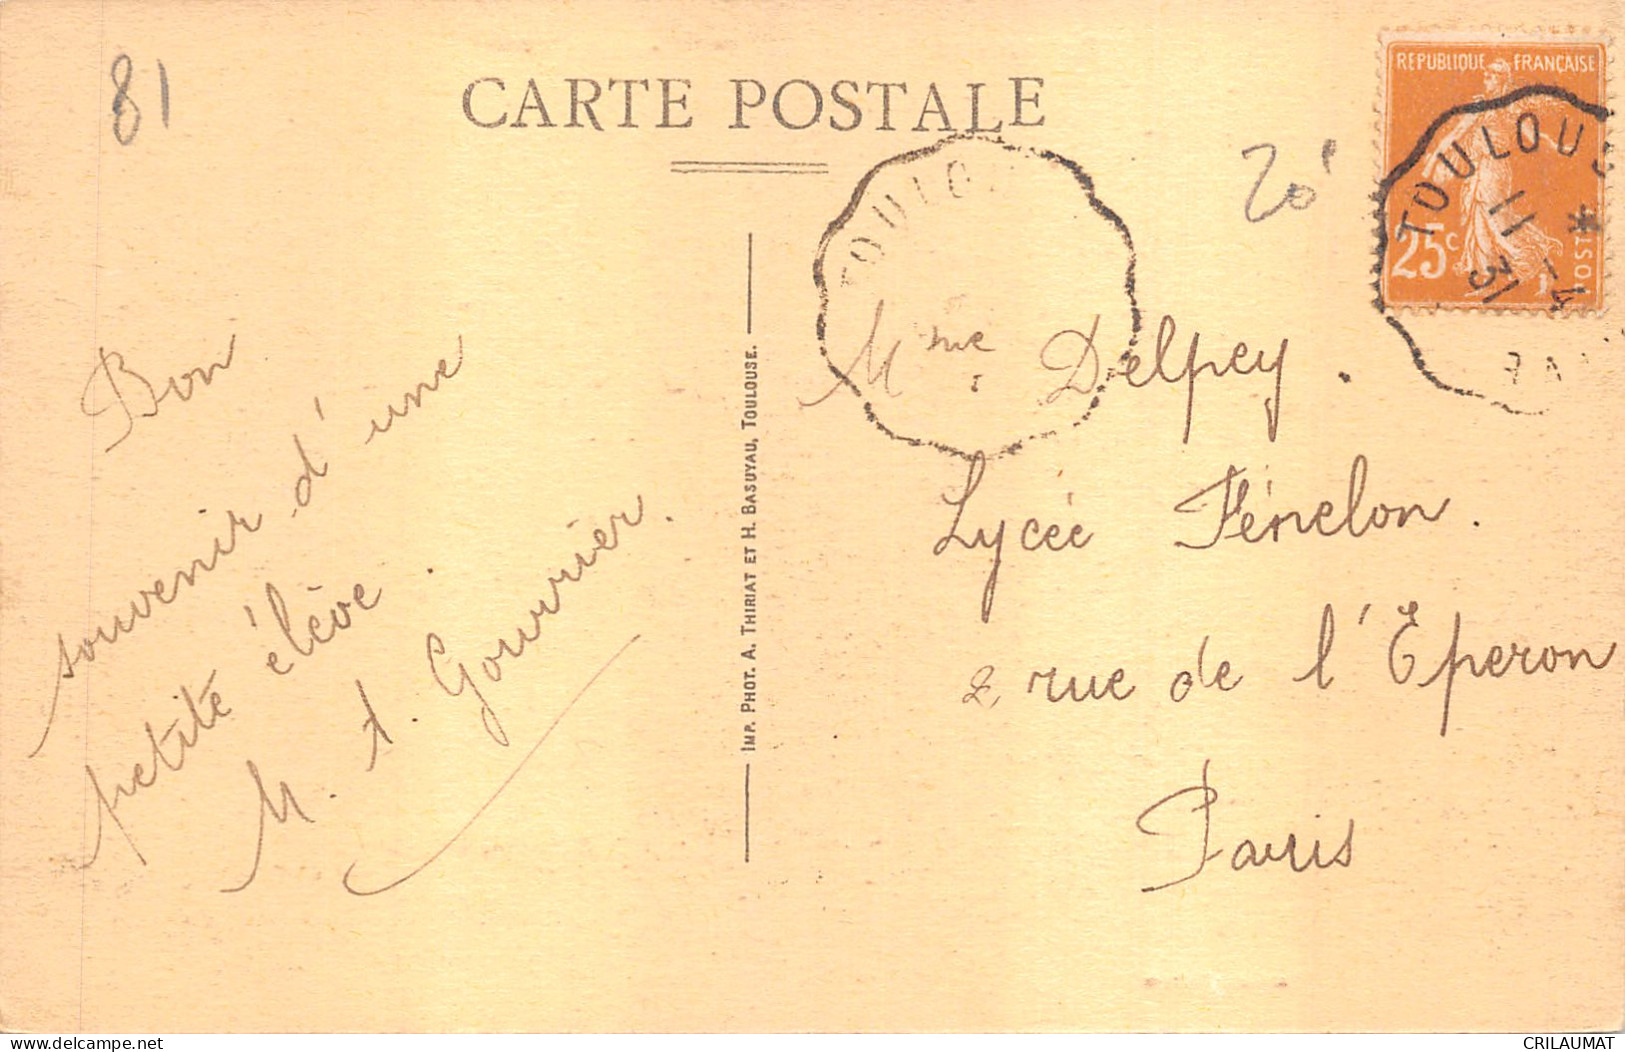 81
CARTE POSTALE
REPUBLIQUE FRANÇAISE
25c
POSTES
TOULOUS
11 - 4
31
TOULO
20
Bon
souvenir d'une
petite élève.
M. A. Gourrier.
IMP. PHOT. A. THIRIAT ET H. BASUYAU, TOULOUSE.
Mme Delpey.
Lycée Fénelon.
2, rue de l'Eperon
Paris
delcampe.net
CRILAUMAT